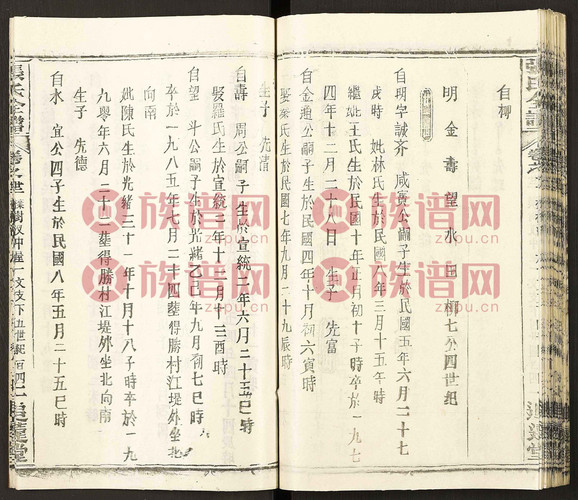 自柳
明金壽望水田柳七公四世紀
自明字誠齊 咸喪公嗣子生於民國五年六月二十七
戌時 妣林氏生於民國六年三月十五午時
繼妣王氏生於民國十年正月初十子時卒於一九七
四年十二月二十八日 生子 先富
自金 公嗣子生於民國四年十月初六寅時
娶秦氏生於民國七年九月二十九辰時
生子 先清
自壽 周公嗣子生於宣統二年六月二十五巳時
娶羅氏生於宣統二年十一月十三酉時
自望 斗公嗣子生於光緒乙巳年九月初七巳時
卒於一九八五年七月二十四葬得勝村江堤外坐北
向南
妣陳氏生於光緒三十一年十月十八子時卒於一九
九零年六月二十二葬得勝村江堤外坐北向南
生子 先德
自水 宜公四子生於民國八年五月二十五巳時
張氏全譜
族谱网
zupu.cn